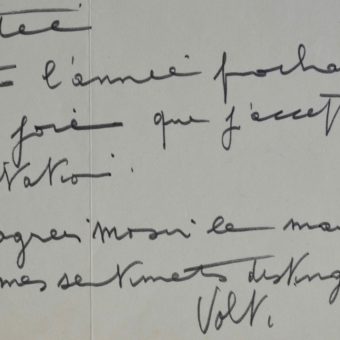 l'année procha
joie que j'accept
tation.
agréi mosi le ma
mes sentimets disting
Volt.